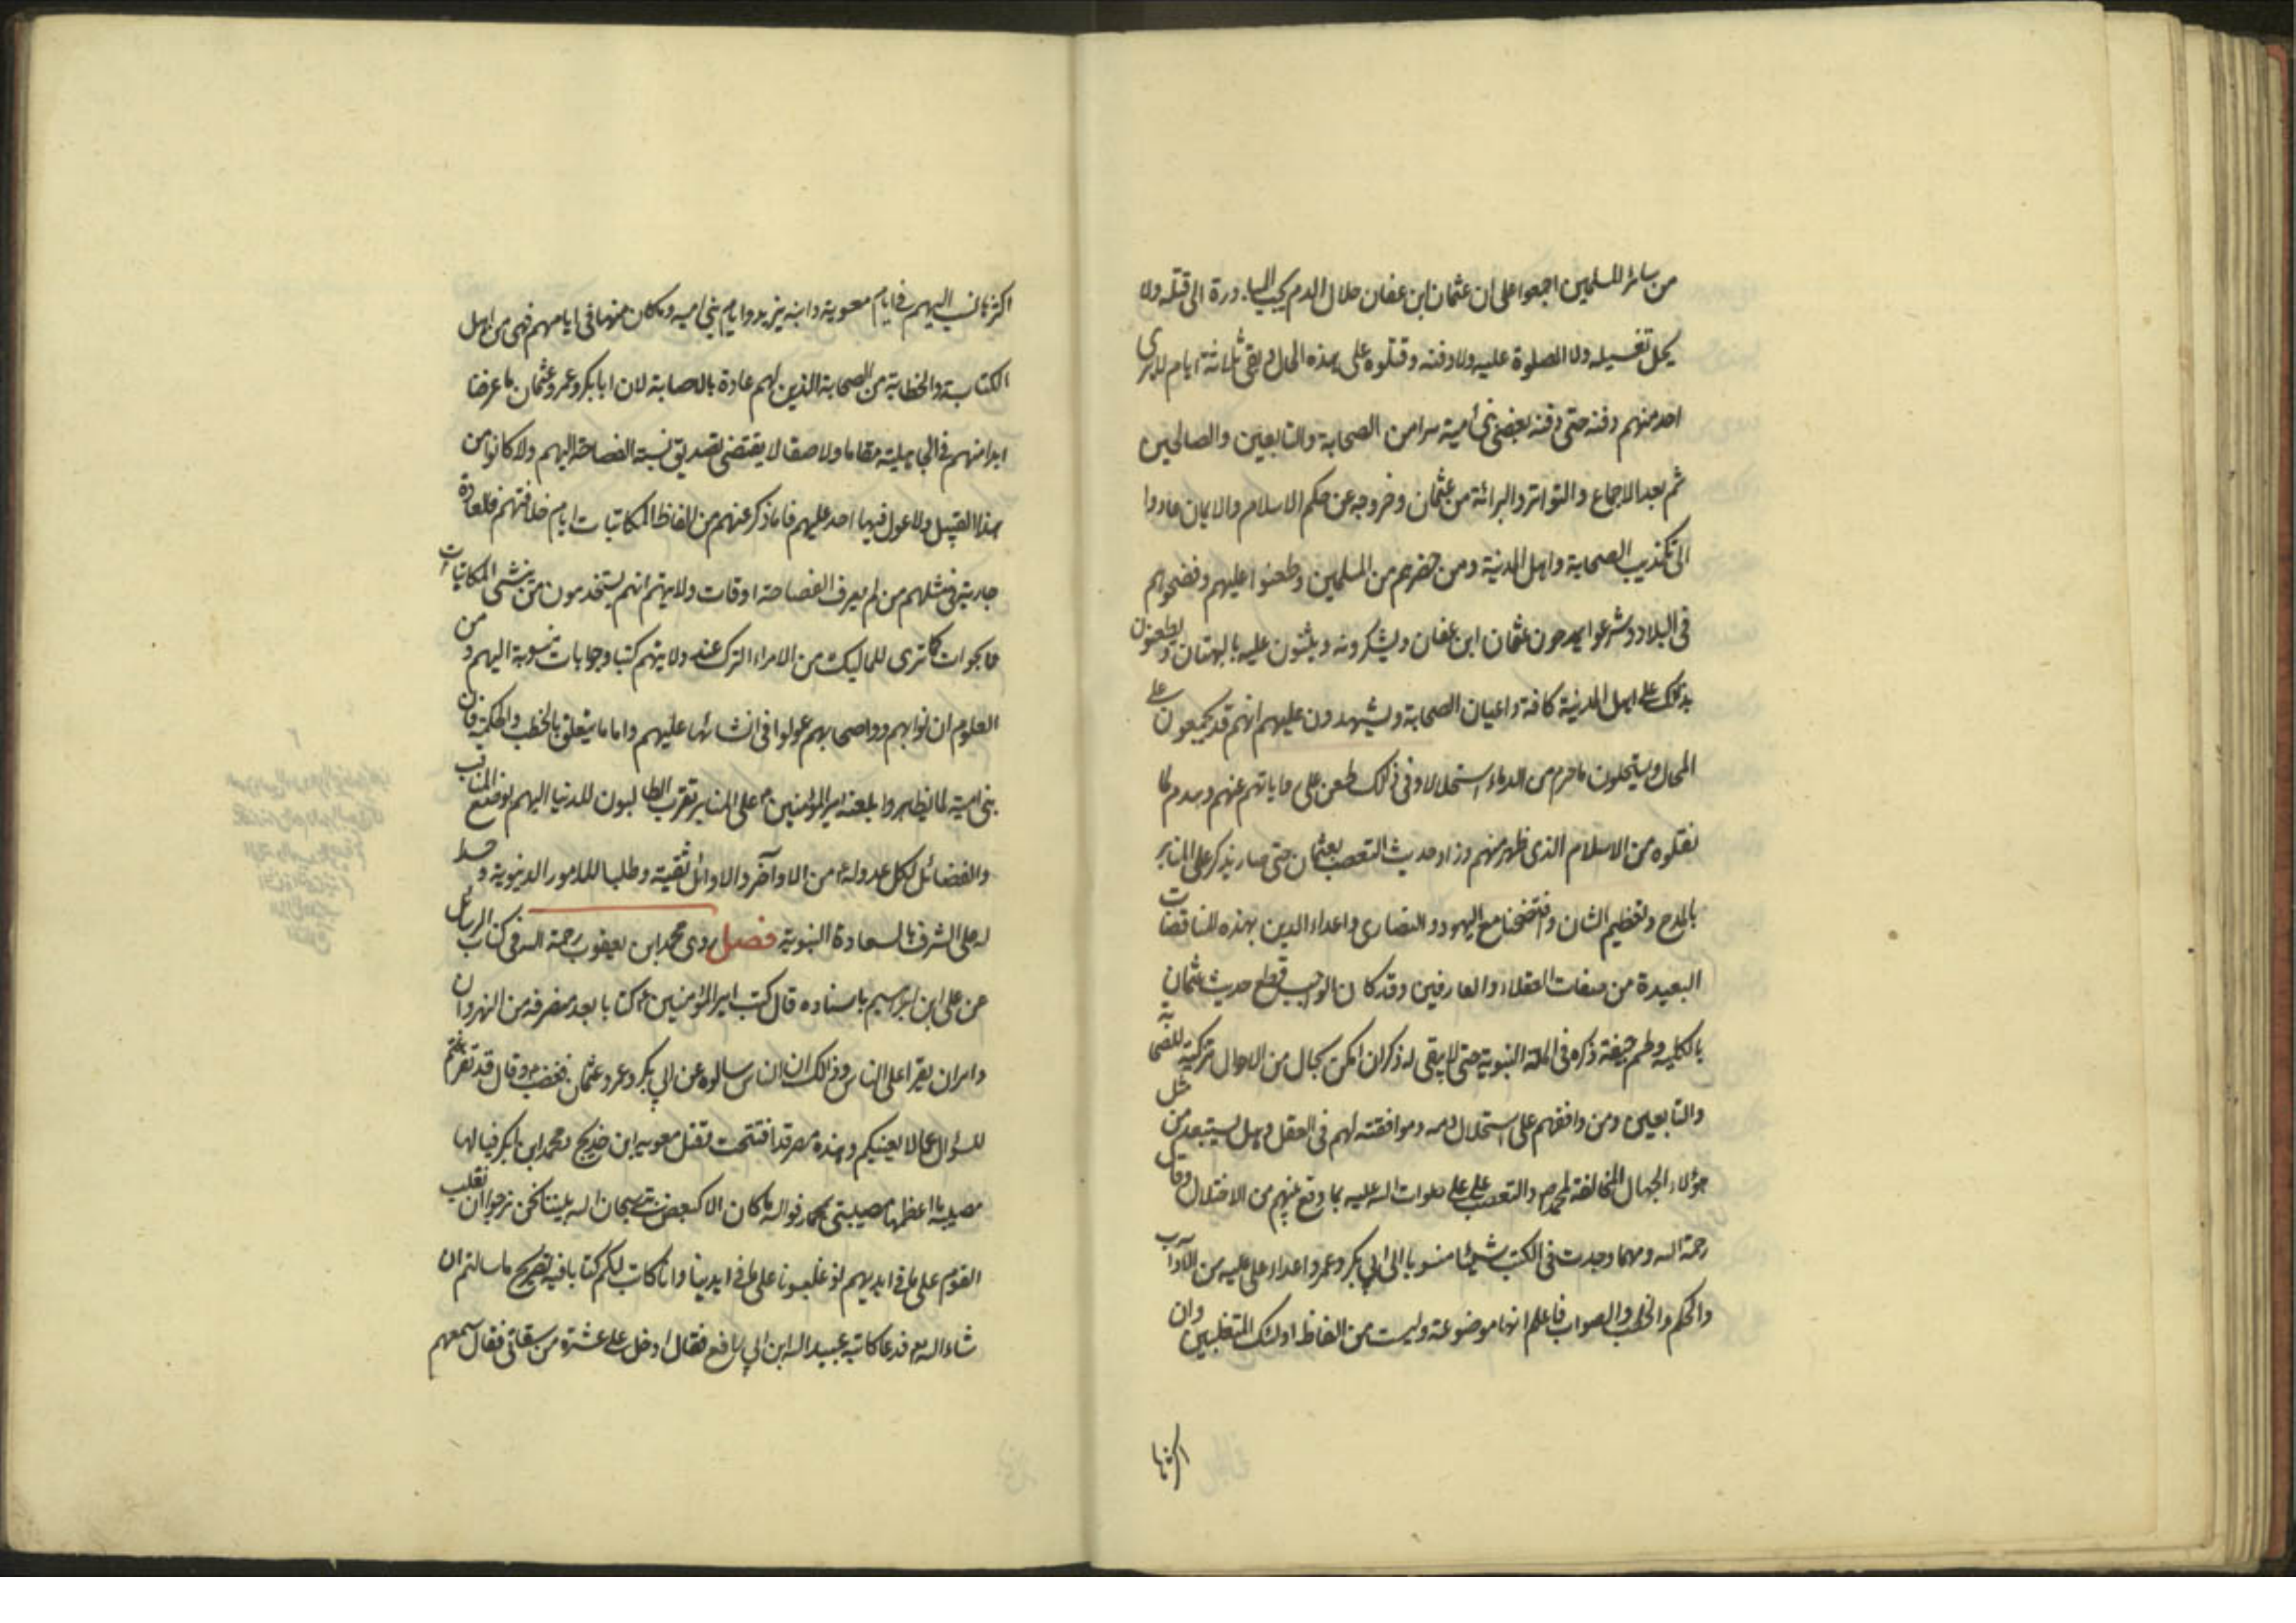 من سائر المسلمين اجمعوا على ان عثمان ابن عفان حلال الدم يجب المبادرة الى قتله ولا
يحل تغسيله ولا الصلوة عليه ولا دفنه وقتلوه على هذه الحال وبقى ثلاثة ايام لا يرى
احد منهم دفنه حتى دفنه بعض بنى أمية سرا من الصحابة والتابعين والصالحين
ثم بعد الاجماع والتواتر والبرائة من عثمان وخروجه عن حكم الاسلام والايمان عادوا
الى تكذيب الصحابة واهل المدينة ومن حضرهم من المسلمين وطعنوا عليهم وفضحوهم
فى البلاد وشرعوا يمدحون عثمان ابن عفان ويشكرونه ويثنون عليه بالبهتان ويطعنون
بذلك على اهل المدينة كافة واعيان الصحابة ويشهدون عليهم انهم قد يجمعون على
المحال ويستحلون ما حرم من الدماء استحلالا وفى ذلك طعن على رواياتهم عنهم وهدم لما
نقلوه من الاسلام الذى ظهر منهم وزاد حديث التعصب لعثمان حتى صار يذكر على المنابر
بالمدح وتعظيم الشان وفتضحنا مع اليهود والنصارى واعداء الدين بهذه المناقضات
البعيدة من صفات العقلاء والعارفين وقد كان الواجب قطع حديث عثمان
بالكلية وطم جيفة ذكره فى الملة النبوية حتى لا يبقى له ذكر ان امكن بحال من الاحوال تزكية للصحابة
والتابعين ومن وافقهم على استحلال دمه وموافقته لهم فى العقل وهل يستبعد من مثل
هؤلاء الجهال المخالفة لمحمد ص والتعصب على على صلوات الله عليه بما وقع منهم من الاختلال وقال
رحمة الله ومهما وجدت فى الكتب شيئا منسوبا الى ابى بكر وعمر واعداء على عليه من الآداب
والحكم والخطب والصواب فاعلم انها موضوعة وليست من الفاظ اولئك المتغلبين وان
اكثرها
اكثر ما نسب اليهم فى ايام معوية وابنه يزيد وايام بنى اميه وما كان منها فى ايامهم فهى من اهل
الكتابة والخطابة من الصحابة الذين لهم عادة بالاصابة لان ابا بكر وعمر وعثمان ما عرفنا
ابدا منهم فى الجاهلية مقاما ولا مقالا يقتضى تصديق نسبة الفصاحة اليهم ولا كانوا من
هذا القبيل ولا عول فيها احد عليهم فاما ذكر عنهم من الفاظ المكاتبات ايام خلافتهم فالعادة
جارية فى مثلهم من لم يعرف الفصاحة اوقات ولايتهم انهم يستخدمون من ينشى المكاتبات
والجوابات كما ترى للماليك من الامراء الترك عند ولايتهم كتبا وجوابات منسوبة اليهم ومن
العلوم ان نوابهم واصحابهم عولوا فى انشائها عليهم واما ما يتعلق بالخطب والحكمة فان
بنى امية لما تظاهروا بلعنة امير المؤمنين ع على المنابر تقرب الطالبون للدنيا اليهم بوضع المناقب
والفضائل لكل عدو له من الاواخر والاوائل تقية وطلبا للامور الدنيوية وحسدا
له على الشرف بالسعادة النبوية فصل روى محمد ابن يعقوب رحمة الله فى كتاب الرسائل
عن على ابن ابراهيم باسناده قال كتب امير المؤمنين ع كتابا بعد منصرفه من النهروان
وامر ان يقرا على الناس وذلك ان الناس سالوه عن ابى بكر وعمر وعثمان فغضب وقال قد تفرغتم
للسؤال عما لا يعنيكم وهذه مصر قد افتتحت وقتل معوية ابن خديج محمد ابن ابى بكر فيالها
مصيبة ما اعظمها مصيبتى بمحمد فوالله ما كان الا كبعض بنى سبحان الله بينا نحن نرجوا ان نغلب
القوم على ما فى ايديهم اذ غلبونا على ما فى ايدينا وانا كاتب لكم كتابا فيه تصريح ما سالتم ان
شاء الله تع فدعا كاتبه عبيد الله ابن ابى رافع فقال له ادخل على عشرة من ثقاتى فقال سمهم